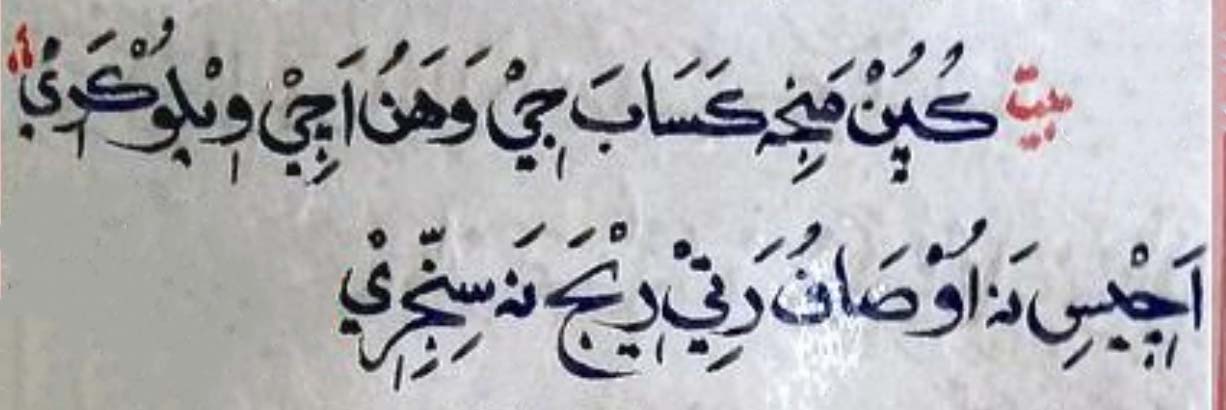 بيت كُپِنْ مَنجِه كَسَابَ جِيْ وَهَنُ اَچِيْ وِيْلُوْ كَرِيْ
اَچِيْسِ نَه اُوْصَافُ رَتِيْ رِيْجَ نَه سِنّجَرِيْ